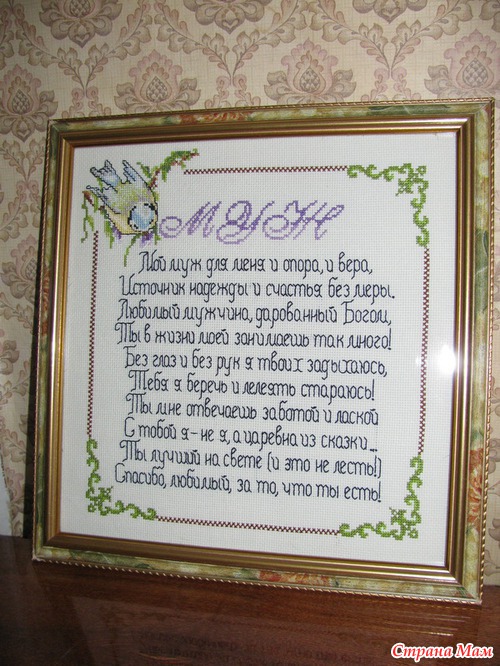 МУЖ
Мой муж для меня и опора, и вера,
Источник надежды и счастья без меры.
Любимый мужчина, дарованный Богом,
Ты в жизни моей занимаешь так много!
Без глаз и без рук я твоих задыхаюсь,
Тебя я беречь и лелеять стараюсь!
Ты мне отвечаешь заботой и лаской
С тобой я - не я, а царевна из сказки...
Ты лучший на свете (и это не лесть!)
Спасибо, любимый, за то, что ты есть!
Страна Мам